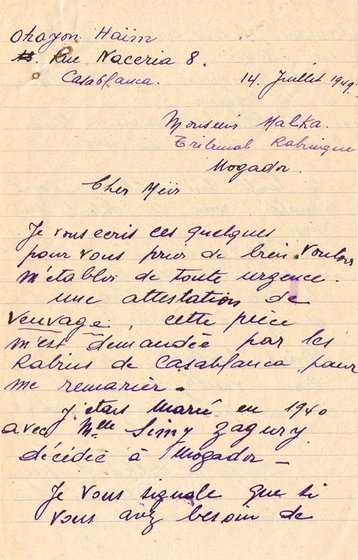 Ohayon Haïm
Rue Naceria 8.
Casablanca.
14 Juillet 1949.
Monsieur Malka.
Tribunal Rabinique
Mogador.
Cher Meïr
Je vous ecris ces quelques
pour vous prier de bien vouloir
m'établir de toute urgence.
une attestation de
veuvage, cette pièce
m'est demandée par les
Rabins de Casablanca pour
me remarier.
J'étais Marié en 1940
avec Mlle Simy Zagury
décédée à Mogador_
Je vous signale que si
vous avez besoin de